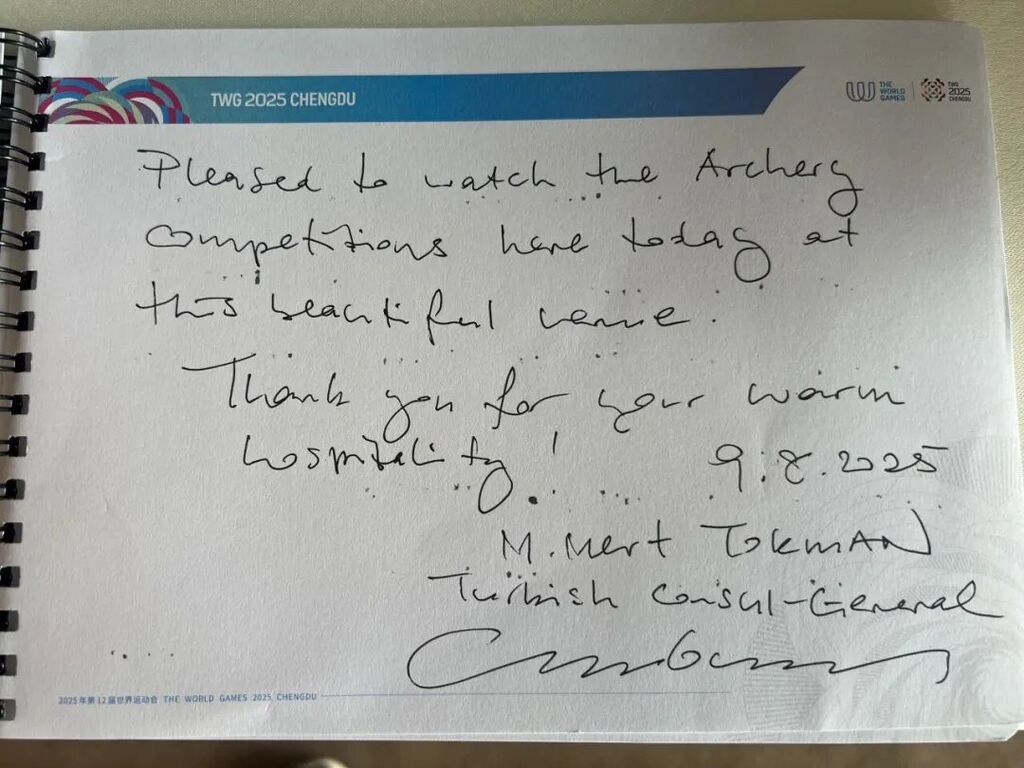 TWG 2025 CHENGDU
THE WORLD GAMES
TWG 2025 CHENGDU
Pleased to watch the Archery
competitions here today at
this beautiful venue.
Thank you for your warm
hospitality!
9.8.2025
M. Mert TOKMAN
Turkish Consul-General
2025年第12届世界运动会 THE WORLD GAMES 2025 CHENGDU